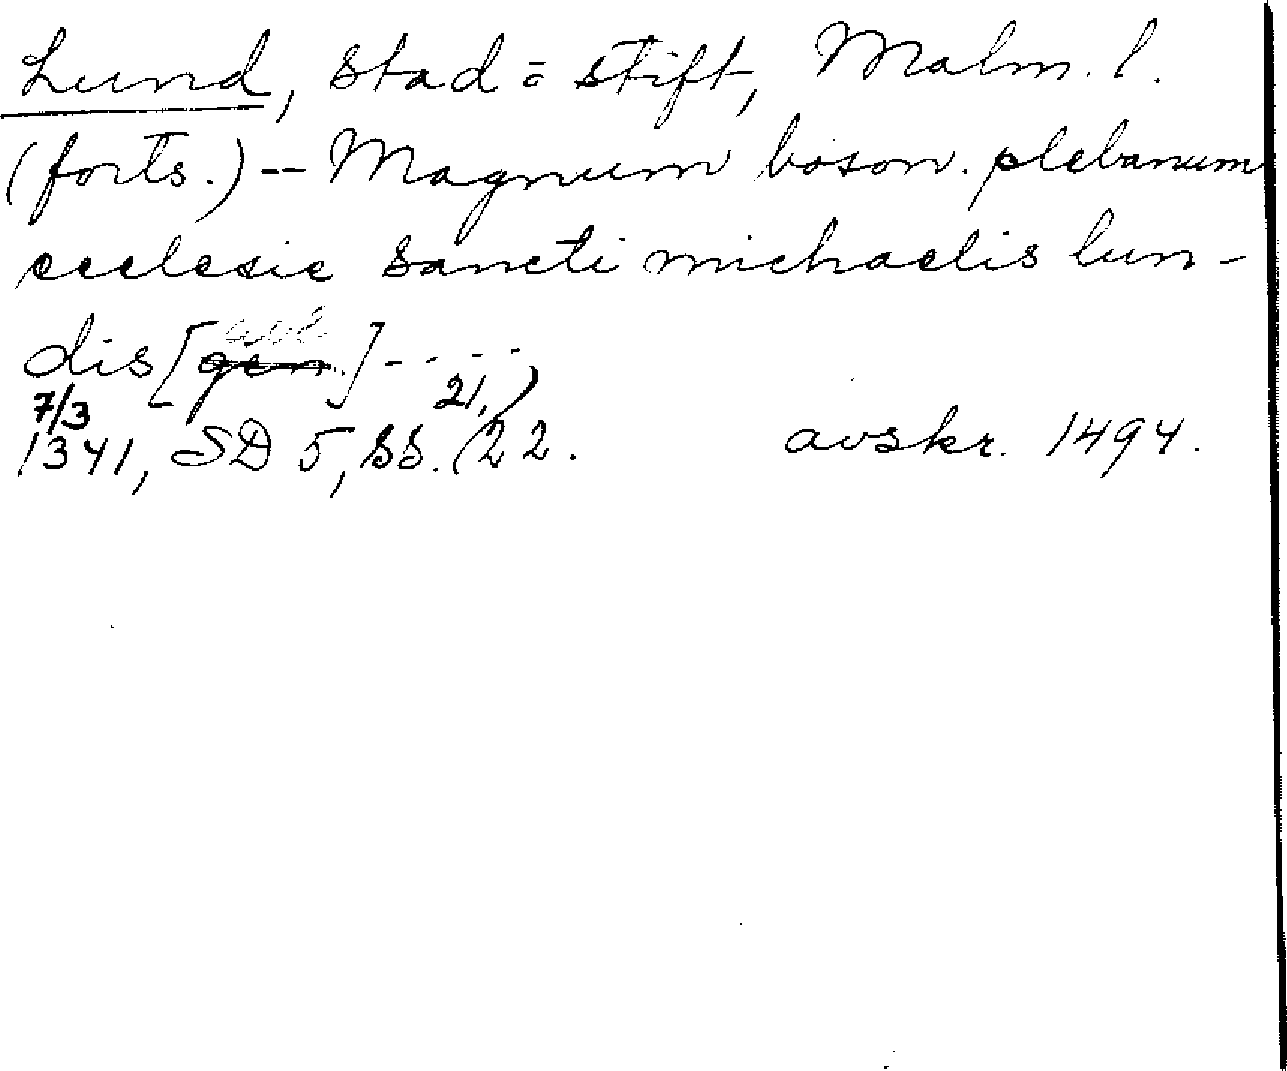 Lund, stad = stift, Malm. l.
(forts.) -- Magnum boson. plebanum
ecclesie sancti michaelis lun-
dis [gen.] - . - . -
abl.
7/3
21,)
1341, SD 5, ss. (22. avskr. 1494.